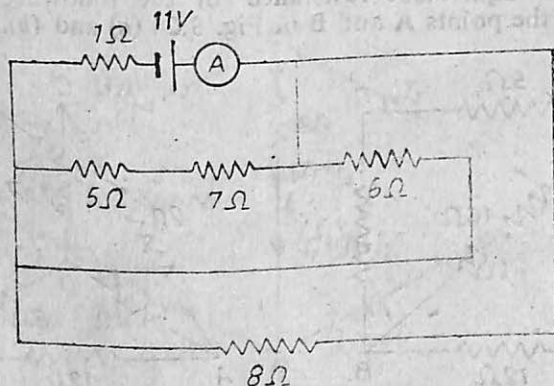 the points A and B in Fig.
11V
1Ω
A
5Ω 7Ω 6Ω
8Ω